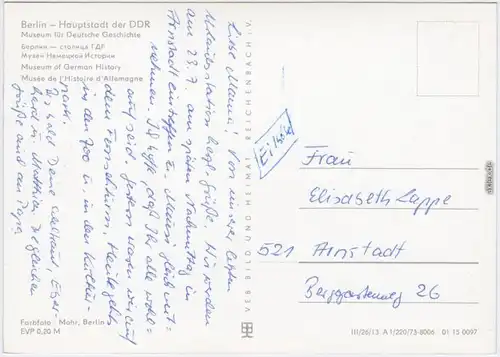 Berlin – Hauptstadt der DDR
Museum für Deutsche Geschichte
Берлин — столица ГДР
Музей Немецкой Истории
Museum of German History
Musée de l'Histoire d'Allemagne
Liebe Mama! Von unserer letzten
Urlaubsstation herzl. Grüße. Wir werden
am 23.7. am späten Nachmittag in
Arnstadt eintreffen u. Mausi
nehmen. Ich hoffe, daß Ihr alle wohl-
auf seid. Gestern waren wir auf
dem Fernsehturm. Heute geht's
in den Zoo u. in den Kultur-
park.
Bis bald Deine
Grüße auch an Papa
Eilt
Frau
Elisabeth Lappe
521 Arnstadt
26
VEB BILD UND HEIMAT REICHENBACH i. V.
Farbfoto: Mohr, Berlin
EVP 0,20 M
III/26/13 A 1/220/73-8006 01 15 0097